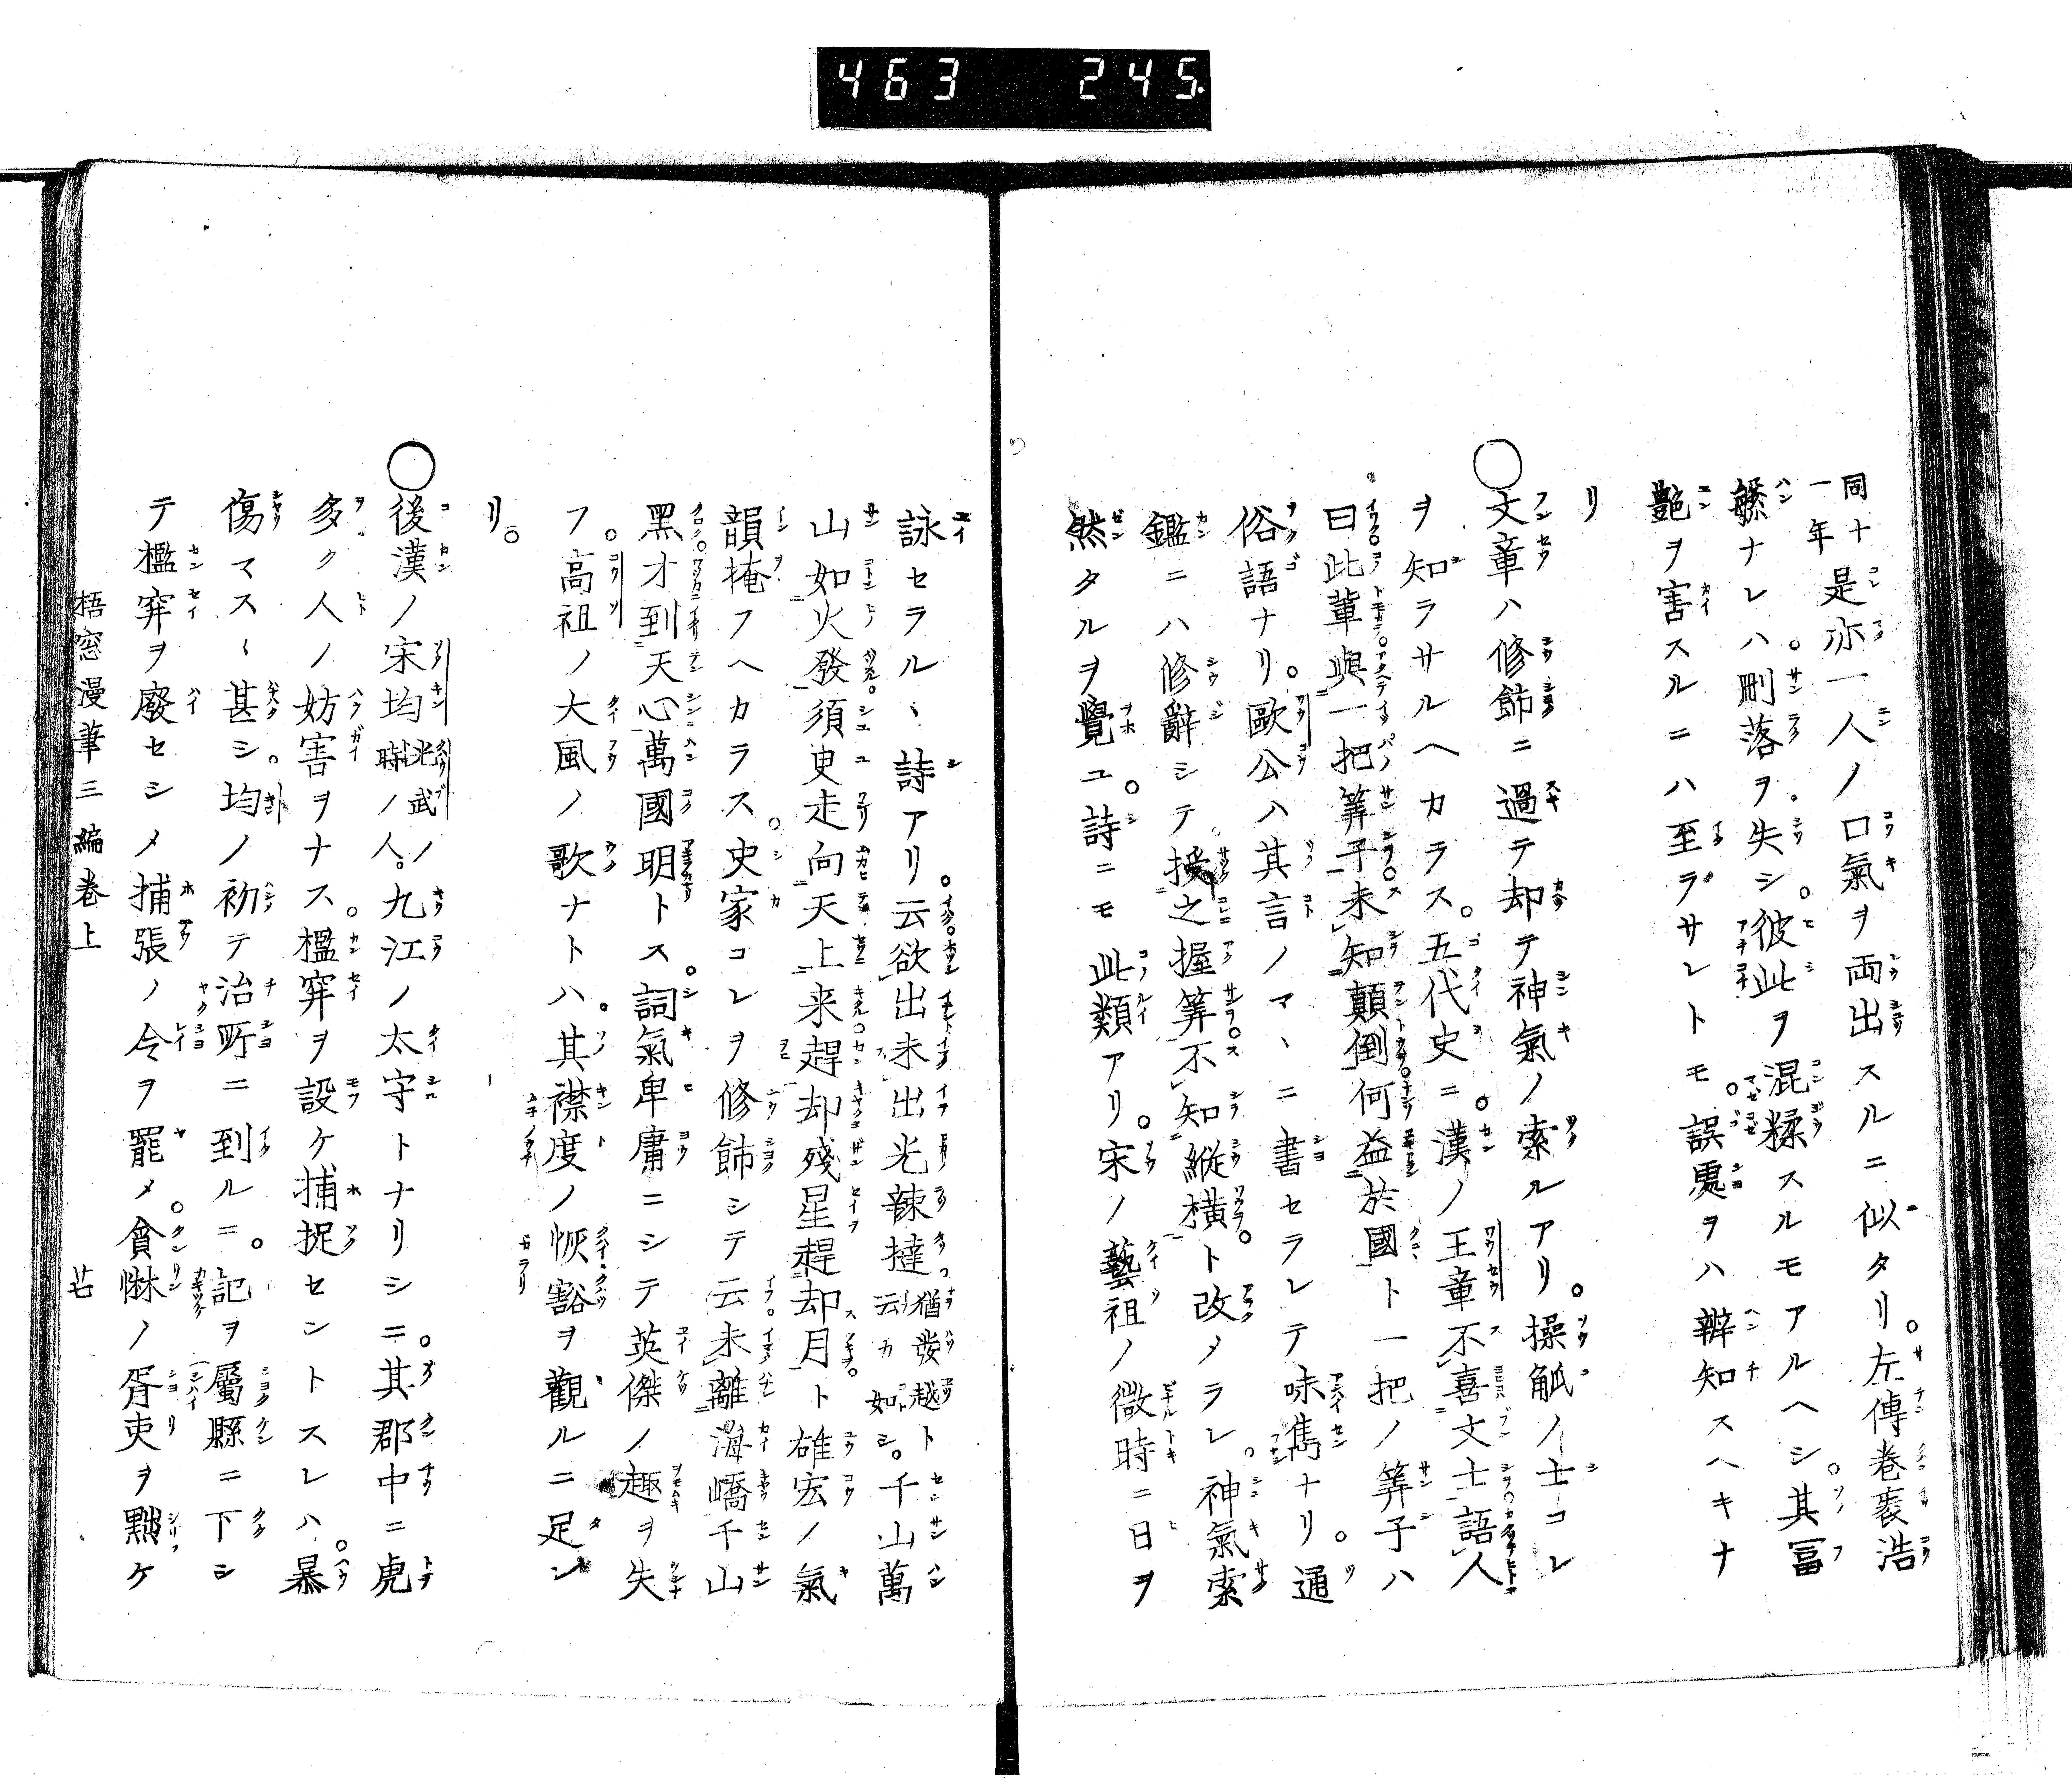 463 245.
同十一年是亦一人ノ口氣ヲ両出スルニ似タリ。左傳巻裘浩
繁ナレハ。刪落ヲ失シ。彼此ヲ混糅スルモアルヘシ。其冨
艶ヲ害スルニハ至ラサレトモ。誤處ヲハ辨知スヘキナ
リ
○文章ハ修飾ニ過テ却テ神氣ノ索ルアリ。操觚ノ士コレ
ヲ知ラサルヘカラス。五代史ニ。漢ノ王章不喜文士語人
曰此輩與一把筭子未知顛倒何益於國ト一把ノ筭子ハ
俗語ナリ。歐公ハ其言ノマヽニ書セラレテ味雋ナリ。通
鑑ニハ修辭シテ。授之握筭不知縦横ト改メラレ。神氣索
然タルヲ覺ユ。詩ニモ此類アリ。宋ノ藝祖ノ微時ニ日ヲ
詠セラルヽ詩アリ。云欲出未出光辣撻猶發越ト云カ如シ。千山萬
山如火發須臾走向天上来趕却殘星趕却月ト雄宏ノ氣
韻掩フヘカラス。史家コレヲ修飾シテ云未離海嶠千山
黑才到天心萬國明トス。詞氣卑庸ニシテ英傑ノ趣ヲ失
フ。高祖ノ大風ノ歌ナトハ。其襟度ノ恢豁ヲ觀ルニ足ン
リ。
○後漢ノ宋均光武ノ時ノ人。九江ノ太守トナリシニ。其郡中ニ虎
多ク人ノ妨害ヲナス。檻穽ヲ設ケ捕捉セントスレハ。暴
傷マス〱甚シ。均ノ初テ治所ニ到ルニ。記ヲ屬縣ニ下シ
テ檻穽ヲ廢セシメ捕張ノ令ヲ罷メ。貪惏ノ胥吏ヲ黜ケ
梧窓漫筆三編巻上 廿